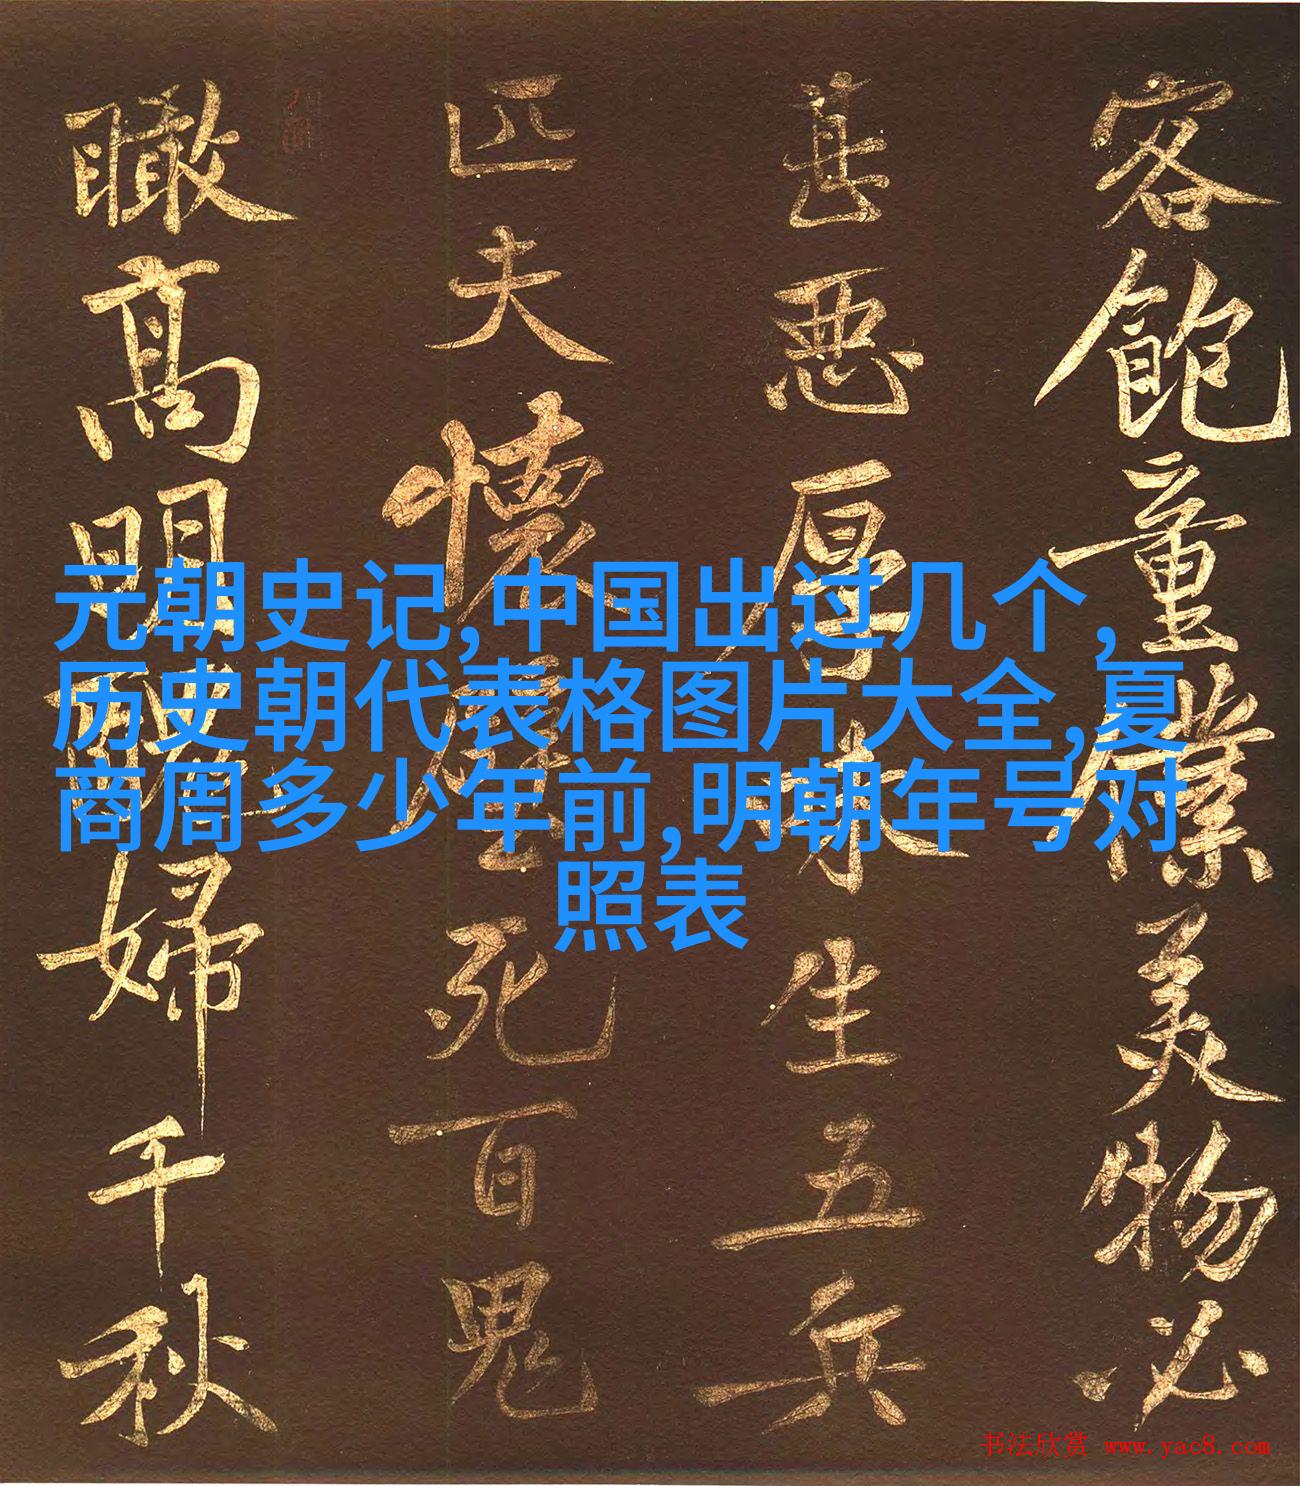 客飽童僕美物必
甚悪厚味生五兵
匹夫懷璧死百鬼
瞰高明醜婦千秋
元朝史记,中国出过几个,
历史朝代表格图片大全,夏
商周多少年前,明朝年号对
照表
书法欣赏 www.yac8.com